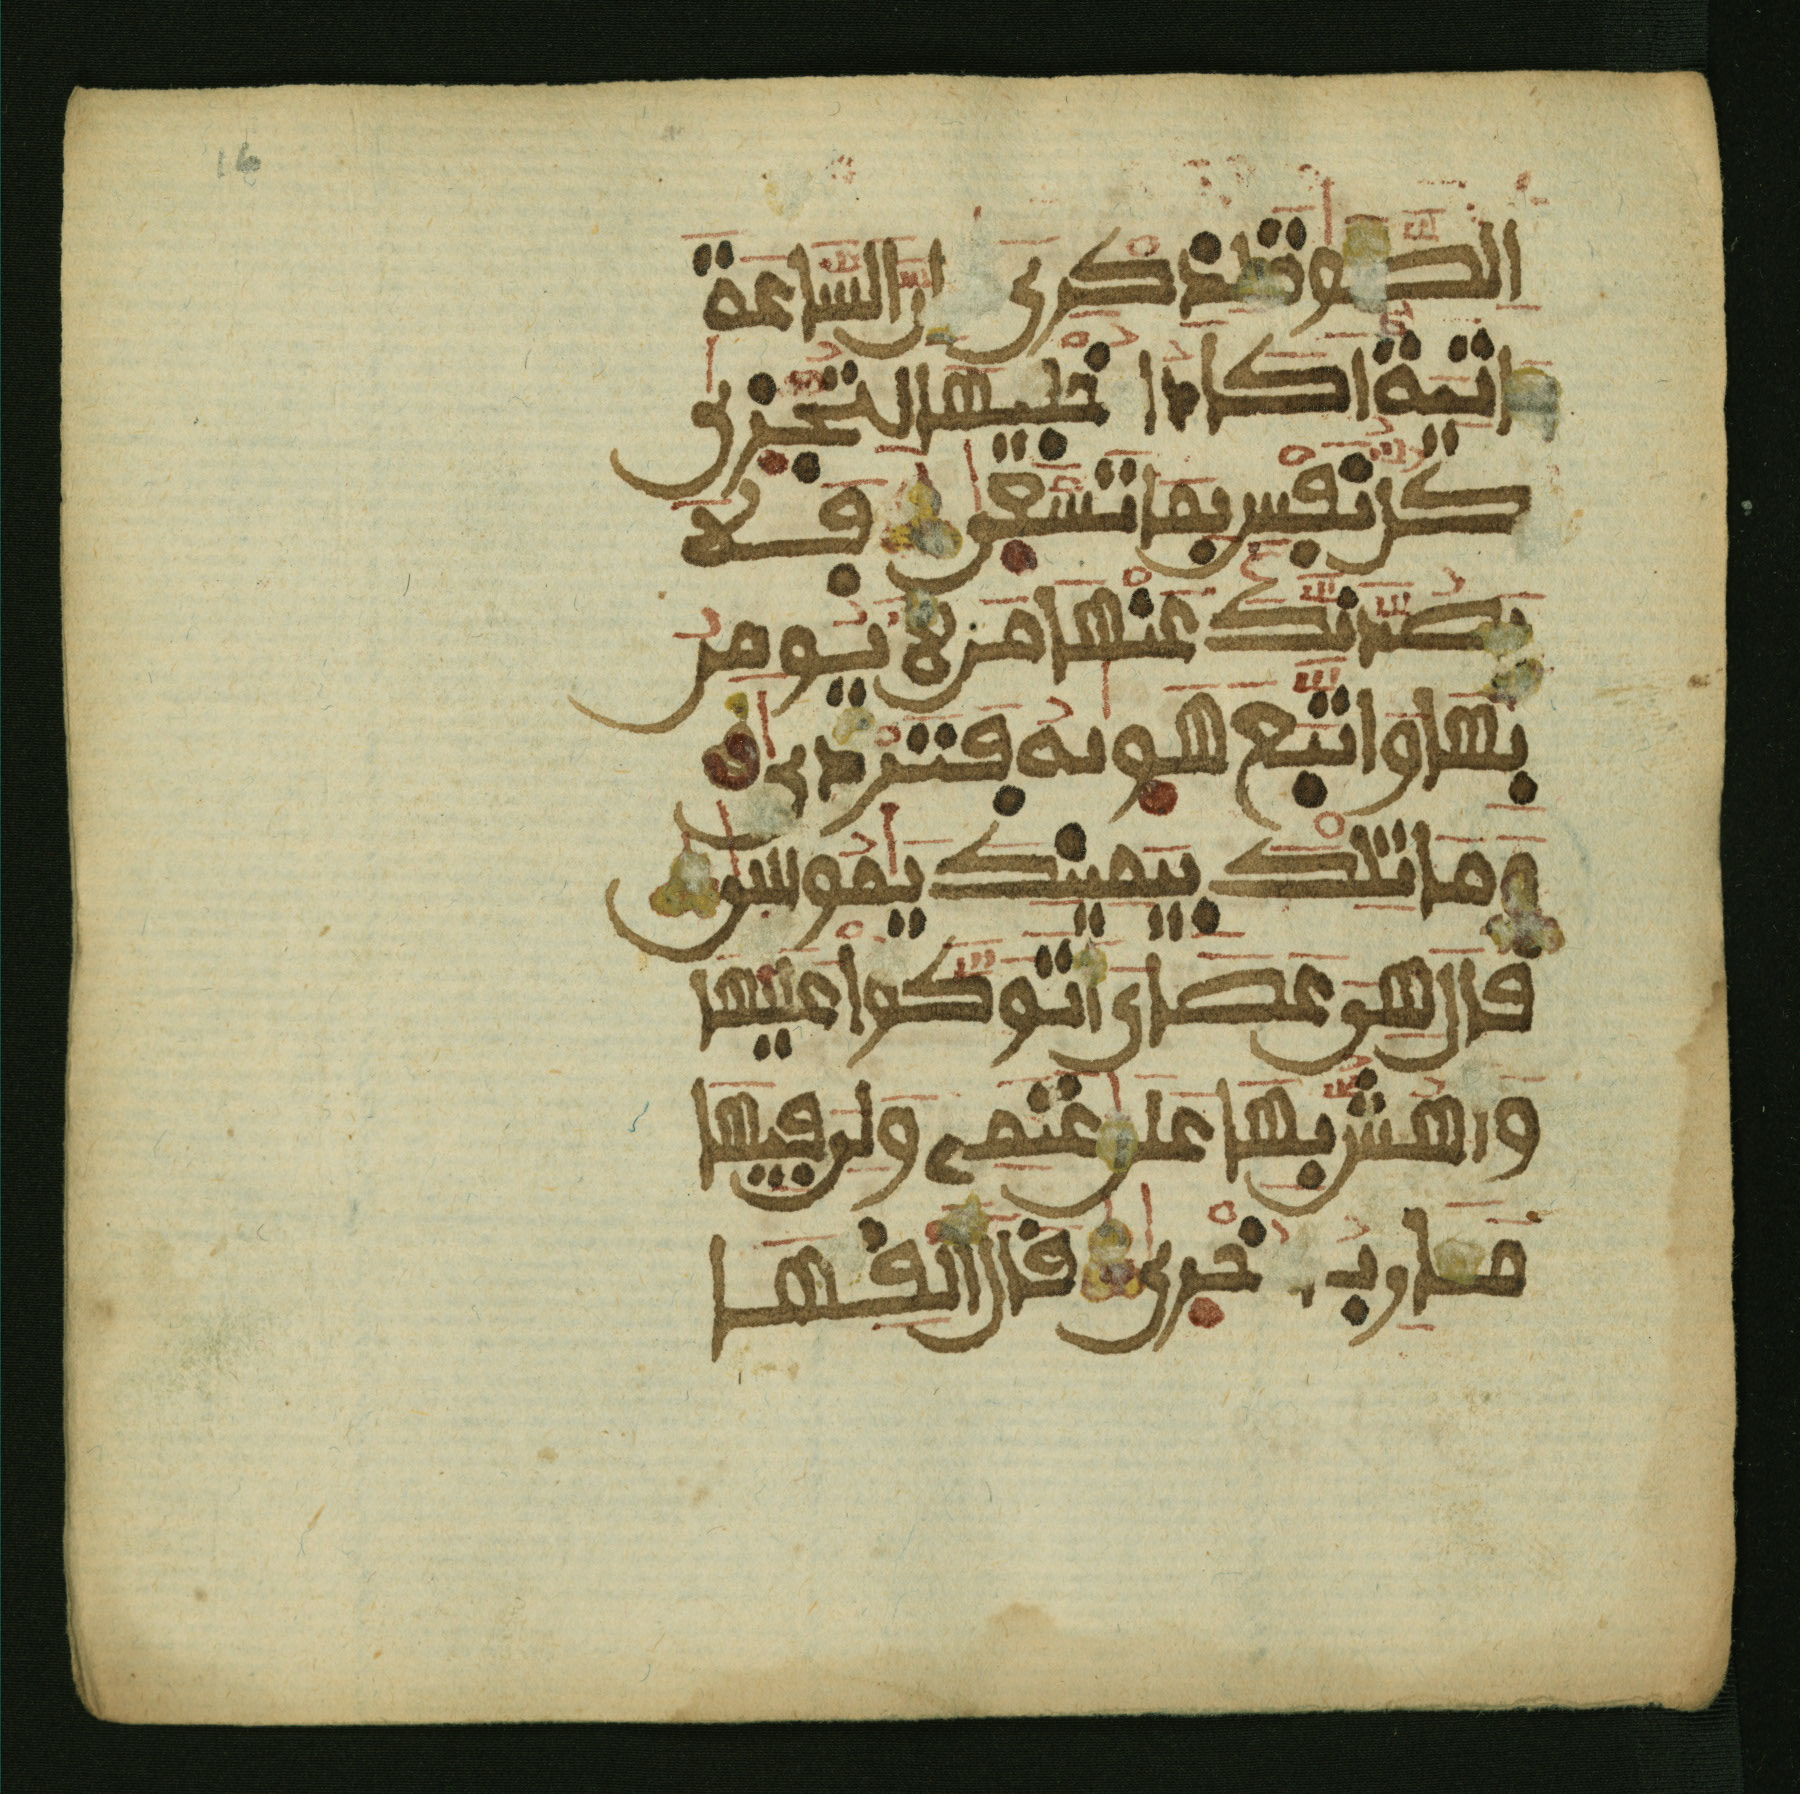 16
الصلوة لذكرى ان الساعة
اتية اكاد ا خفيها لتجزى
كل نفس بما تسعى فلا
يصدنك عنها من لا يومن
بها واتبع هويه فتردى
وما تلك بيمينك يموسى
قال هى عصاى اتوكوا عليها
واهش بها على غنمى ولى فيها
مارب ا خرى قال القها